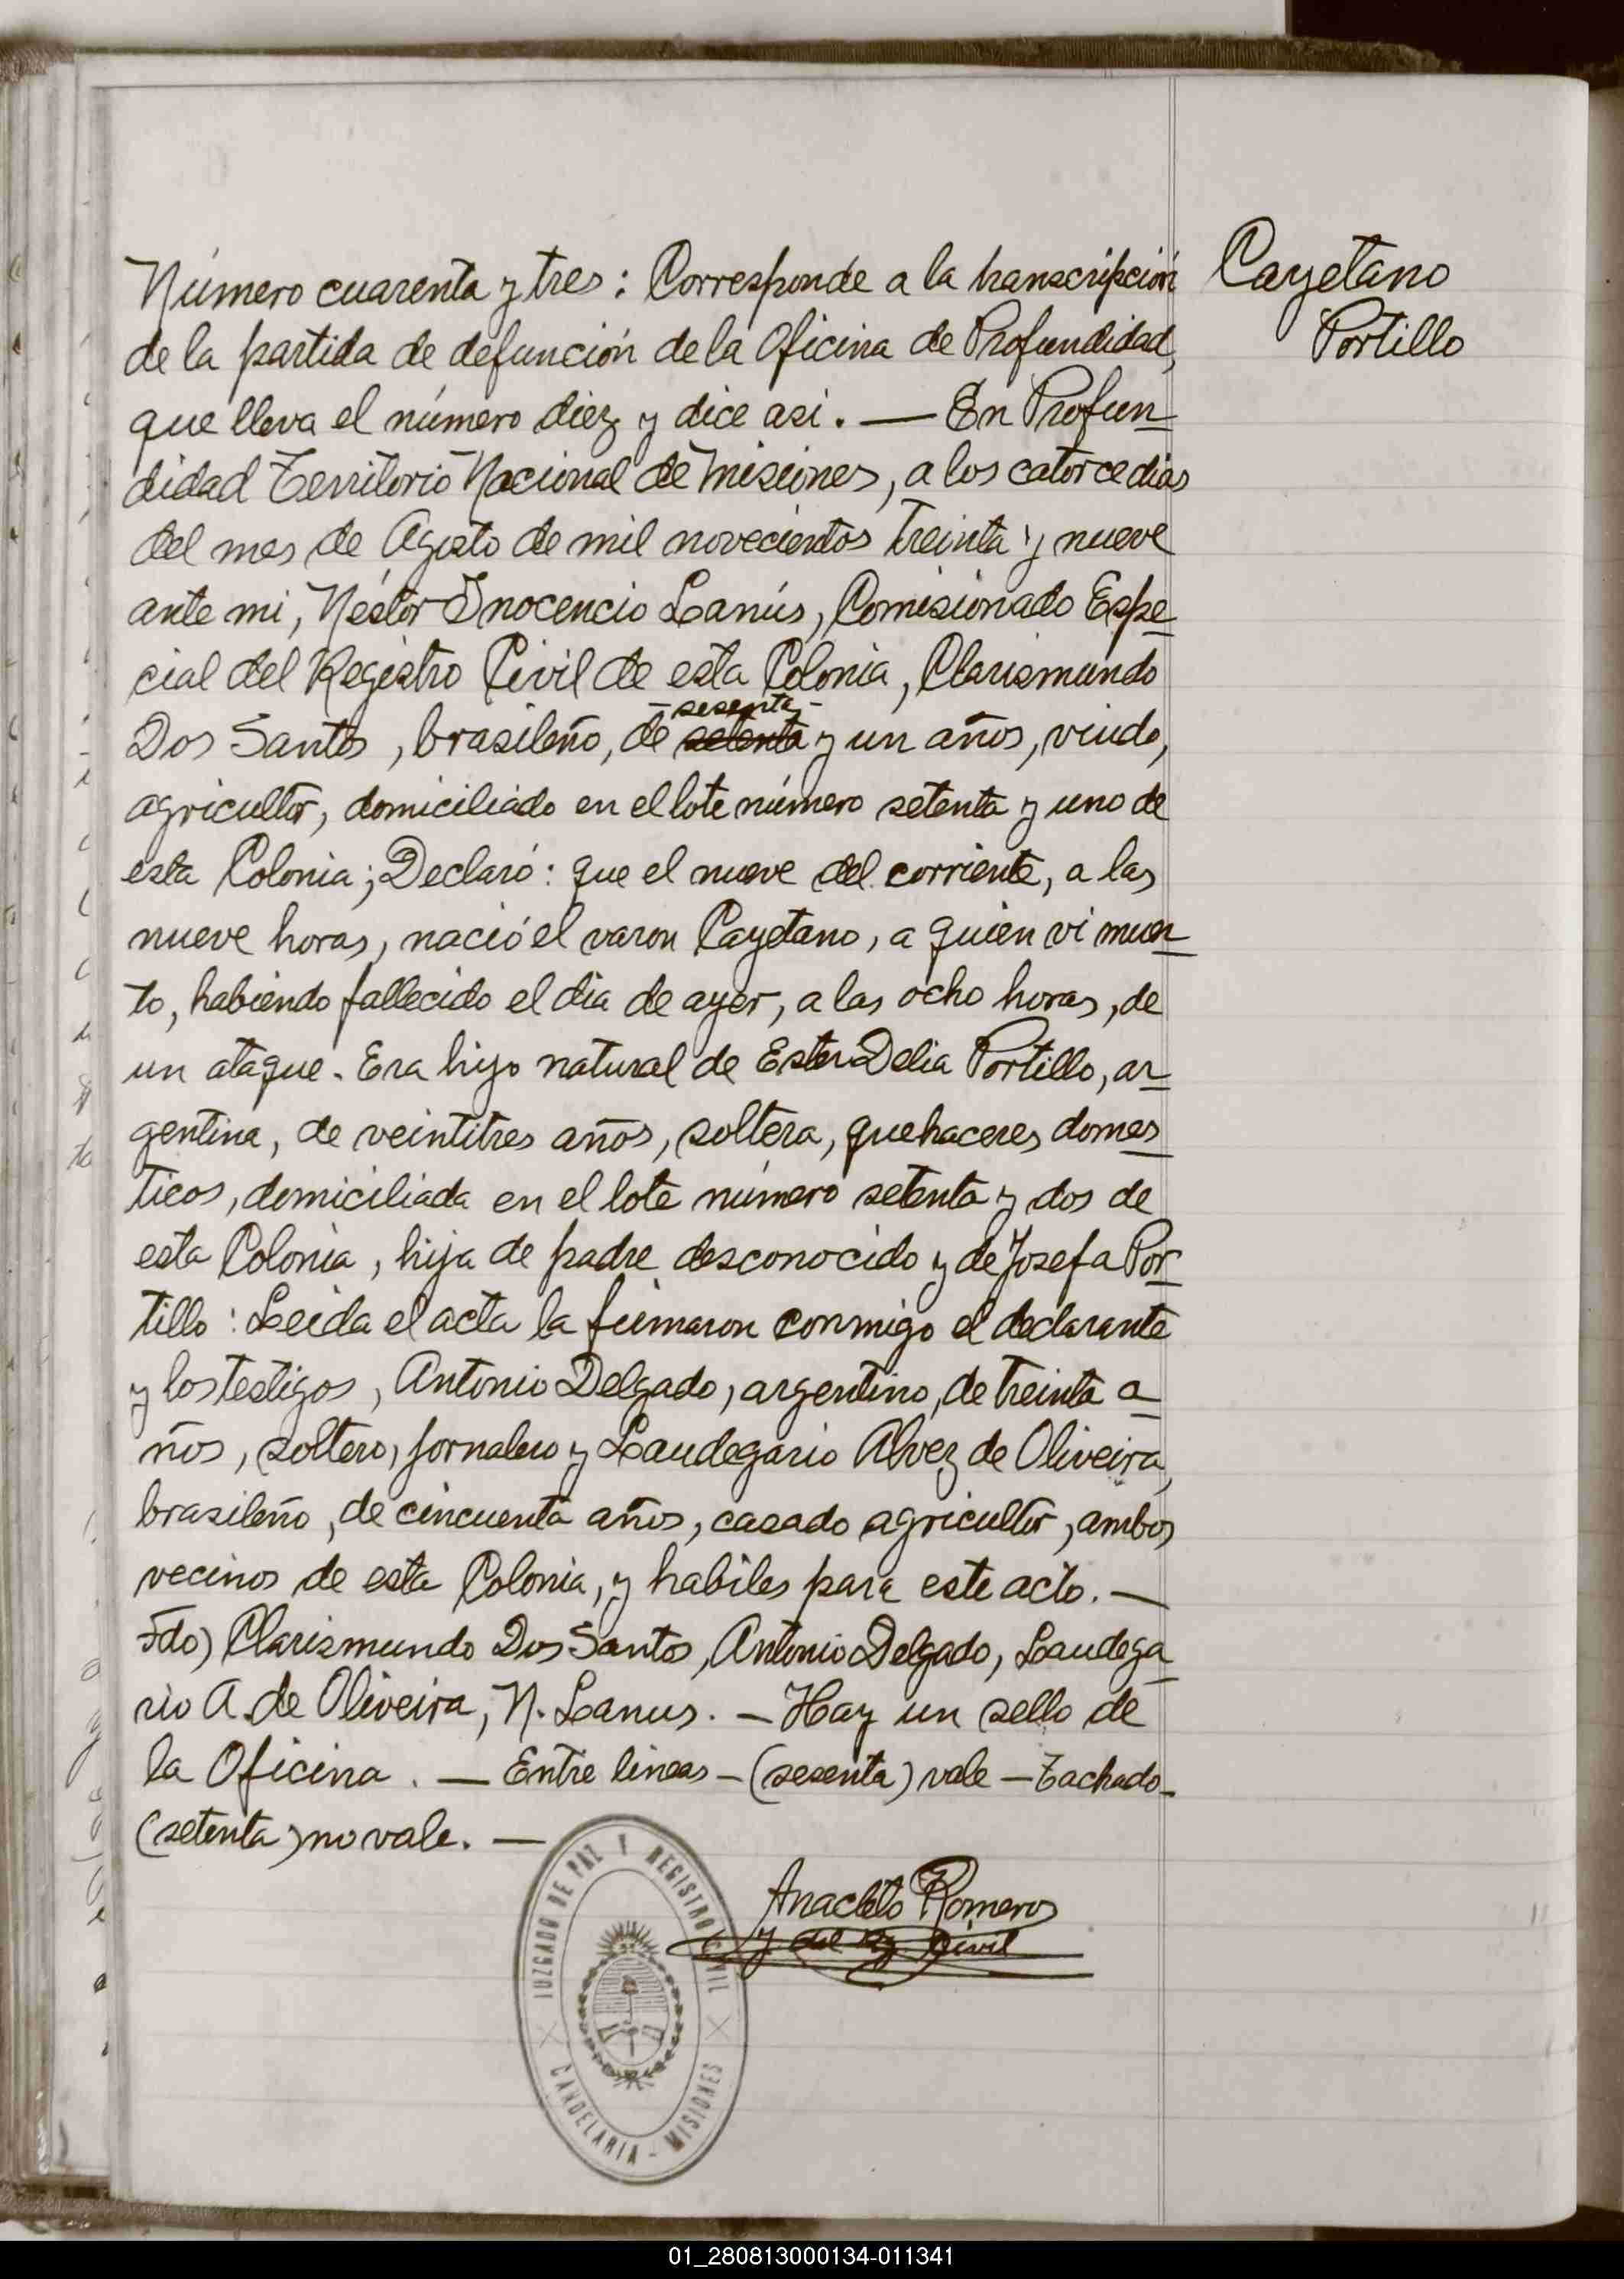 Cayetano
Portillo
Número cuarenta y tres: Corresponde a la transcripción
de la partida de defunción de la Oficina de Profundidad,
que lleva el número diez y dice asi. — En Profun-
didad Territorio Nacional de Misiones, a los catorce dias
del mes de Agosto de mil novecientos treinta y nueve
ante mi, Néstor Inocencio Lanús, Comisionado Espe-
cial del Registro Civil de esta Colonia, Clarismundo
- sesenta -
Dos Santos, brasileño, de setenta y un años, viudo,
agricultor, domiciliado en el lote número setenta y uno de
esta Colonia; Declaró: que el nueve del corriente, a las
nueve horas, nació el varon Cayetano, a quien vi muer-
to, habiendo fallecido el dia de ayer, a las ocho horas, de
un ataque. Era hijo natural de Ester Delia Portillo, ar-
gentina, de veintitres años, soltera, quehaceres domes-
ticos, domiciliada en el lote número setenta y dos de
esta Colonia, hija de padre desconocido y de Josefa Por-
tillo: Leida el acta la firmaron conmigo el declarante
y los testigos, Antonio Delgado, argentino, de treinta a-
ños, soltero, jornalero y Laudegario Alvez de Oliveira,
brasileño, de cincuenta años, casado agricultor, ambos
vecinos de esta Colonia, y habiles para este acto. —
Fdo) Clarismundo Dos Santos, Antonio Delgado, Laudega-
rio A. de Oliveira, N. Lanus. — Hay un sello de
la Oficina. — Entre lineas - (sesenta) vale — Tachado -
(setenta) no vale. —
JUZGADO DE PAZ Y REGISTRO CIVIL
CANDELARIA - MISIONES
Anacleto Romero
J. del Rg Civil
01_280813000134-011341